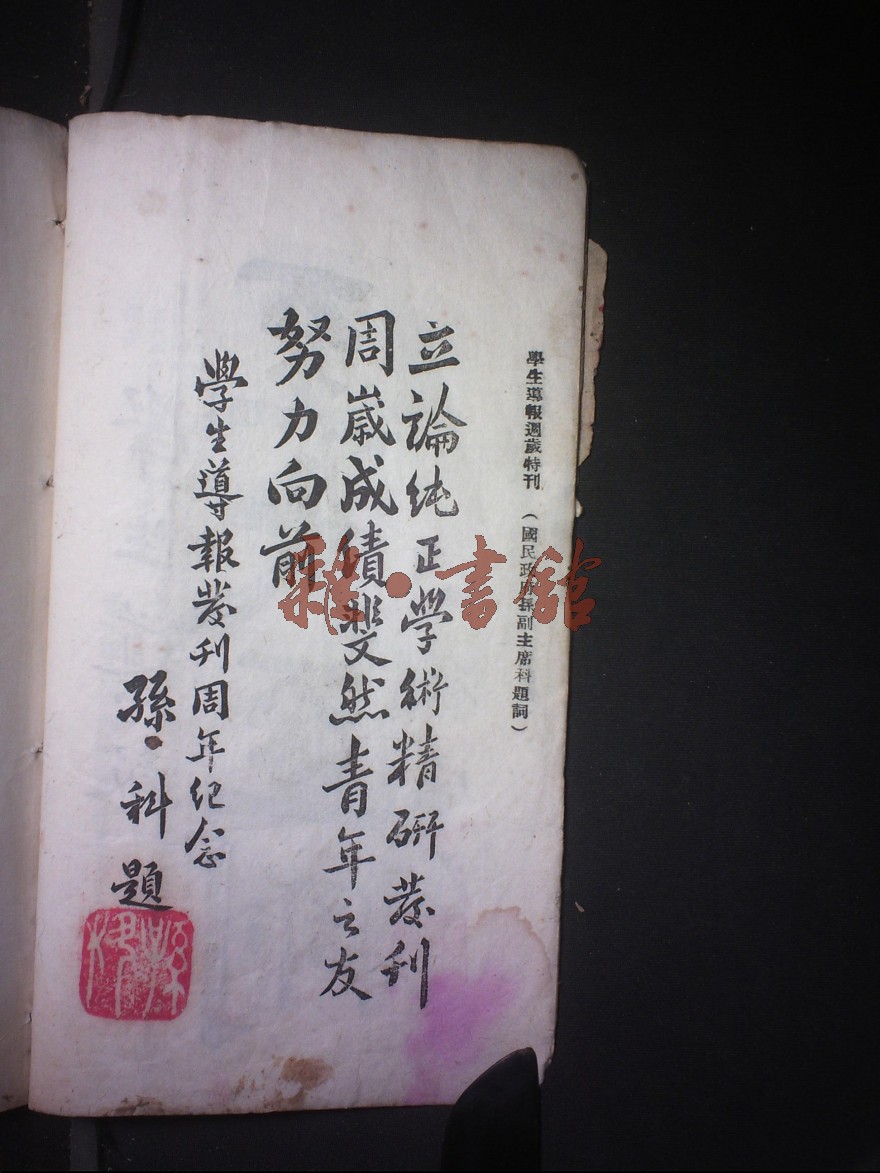 學生導報週歲特刊 (國民政府孫副主席科題詞)
立論純正學術精研發刊
周歲成績斐然青年之友
努力向前
學生導報發刊周年紀念
孫·科題
雜·書館